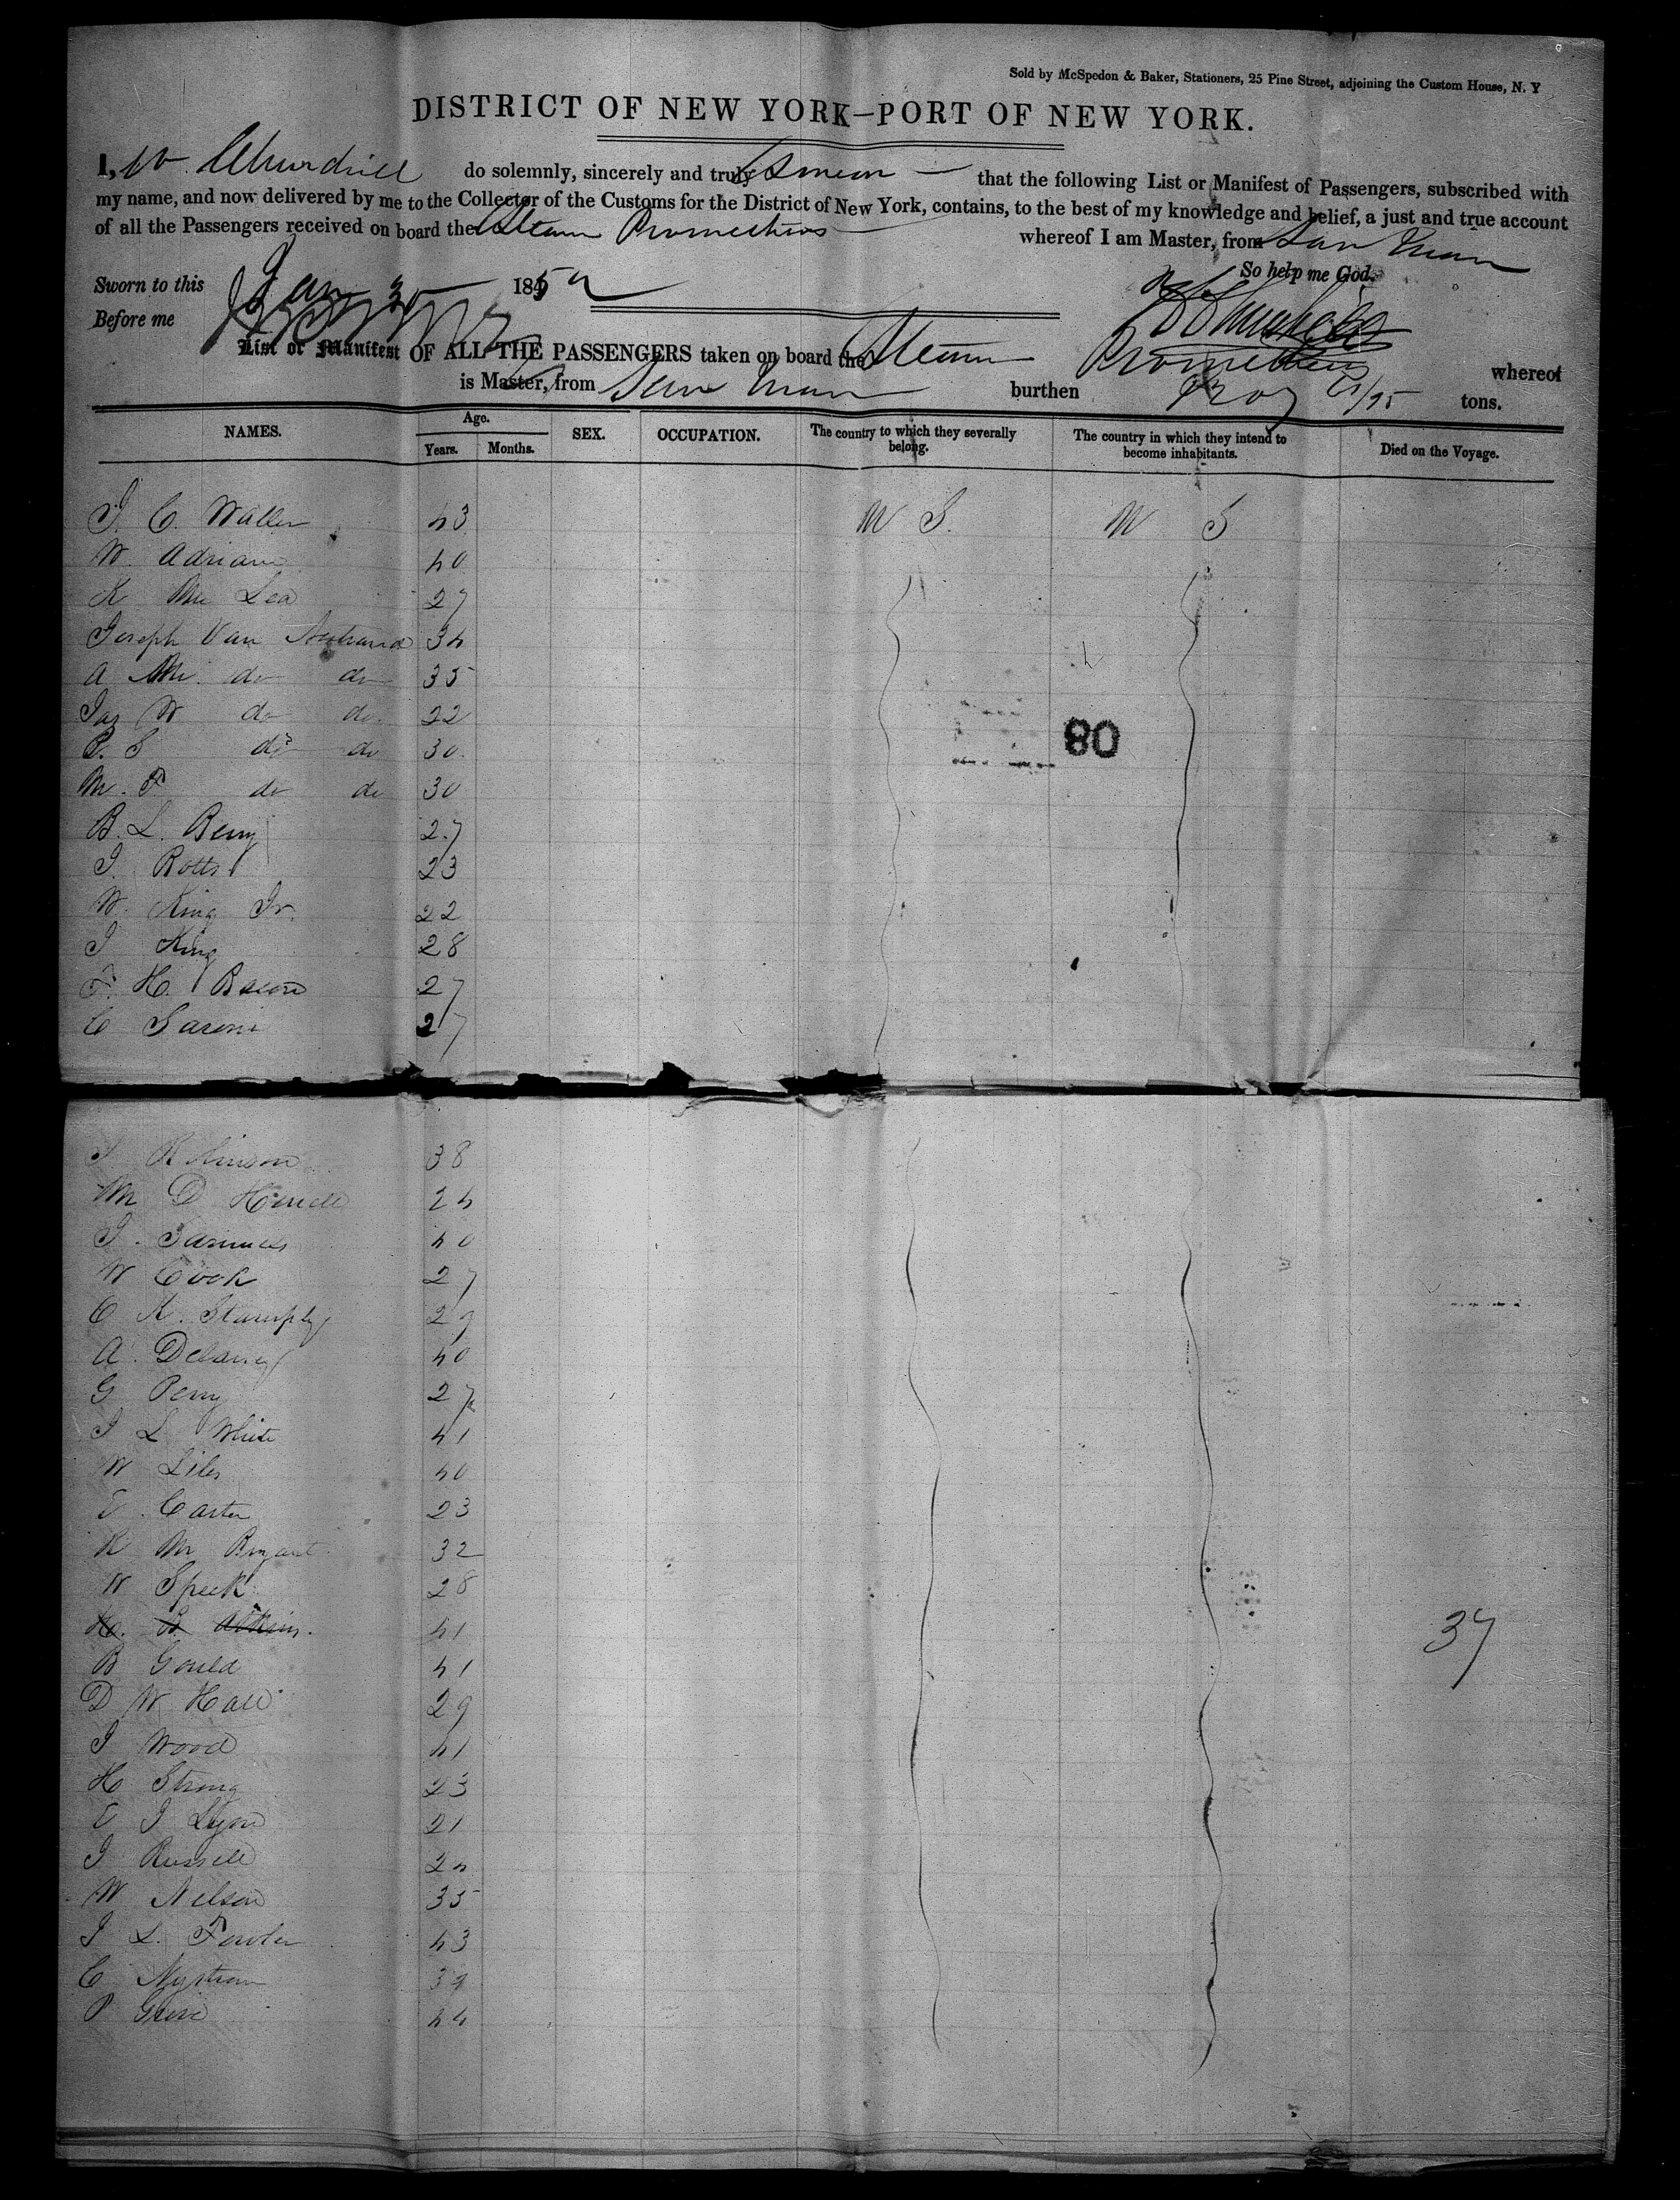 Sold by McSpedon & Baker, Stationers, 25 Pine Street, adjoining the Custom House, N. Y
DISTRICT OF NEW YORK—PORT OF NEW YORK.
I, W Churchill do solemnly, sincerely and truly Swear that the following List or Manifest of Passengers, subscribed with
my name, and now delivered by me to the Collector of the Customs for the District of New York, contains, to the best of my knowledge and belief, a just and true account
of all the Passengers received on board the Steam Prometheus whereof I am Master, from San Juan
So help me God.
Sworn to this Jan 30 1852
Before me
List or Manifest OF ALL THE PASSENGERS taken on board the Steam Prometheus whereof
is Master, from San Juan burthen tons.
NAMES. Age. Years. Months. SEX. OCCUPATION. The country to which they severally belong. The country in which they intend to become inhabitants. Died on the Voyage.
J. C. Waller 43 U S. U S
W. Adriance 40
K Mc Lea 27
Joseph Van Nostrand 34
A M. do do 35
Jas W do do. 22
P. S do do 30.
M. F do do 30
B. L. Berry 27
J. Botts 23
W. King Jr. 22
J King 28
F. H. Bacon 27
C Saroni 27
80
J Robinson 38
M D Hewell 24
J. Samuels 40
W Cook 27
C K. Stamply 29
A. Delaney 40
G Perry 27
J L White 41
W Liles 40
E. Carter 23
K M Bryant 32
W Speek 28
H. B. Atkins. 41
B Gould 41
39
D W Hall 29
J Wood 41
H Strong 23
E J Lyon 21
J Russell 24
W Nelson 35
J L. Fowler 43
C Nystrom 39
P 44